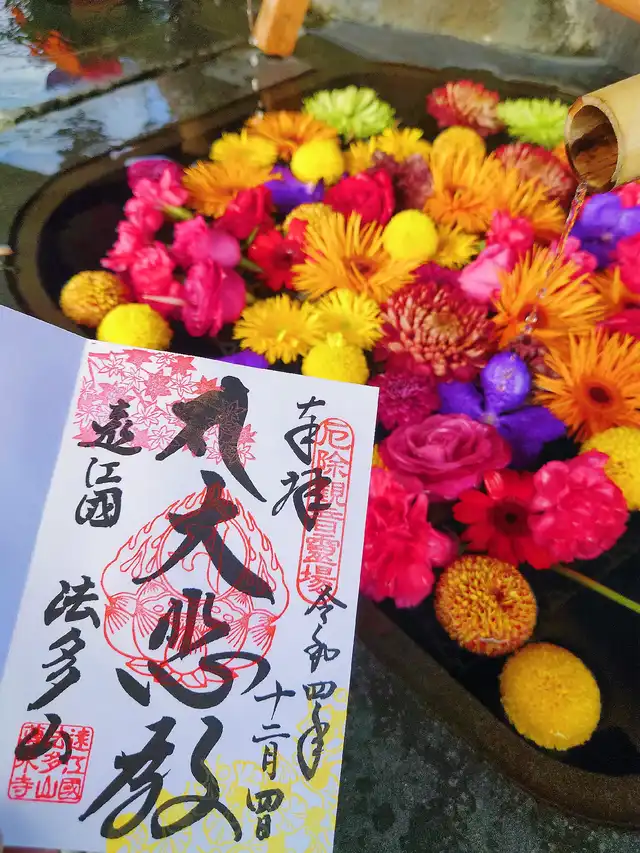 奉拝
厄除觀音靈場
令和四年
十二月四日
大悲殿
遠江国
法多山
遠江國
法多山
尊永寺